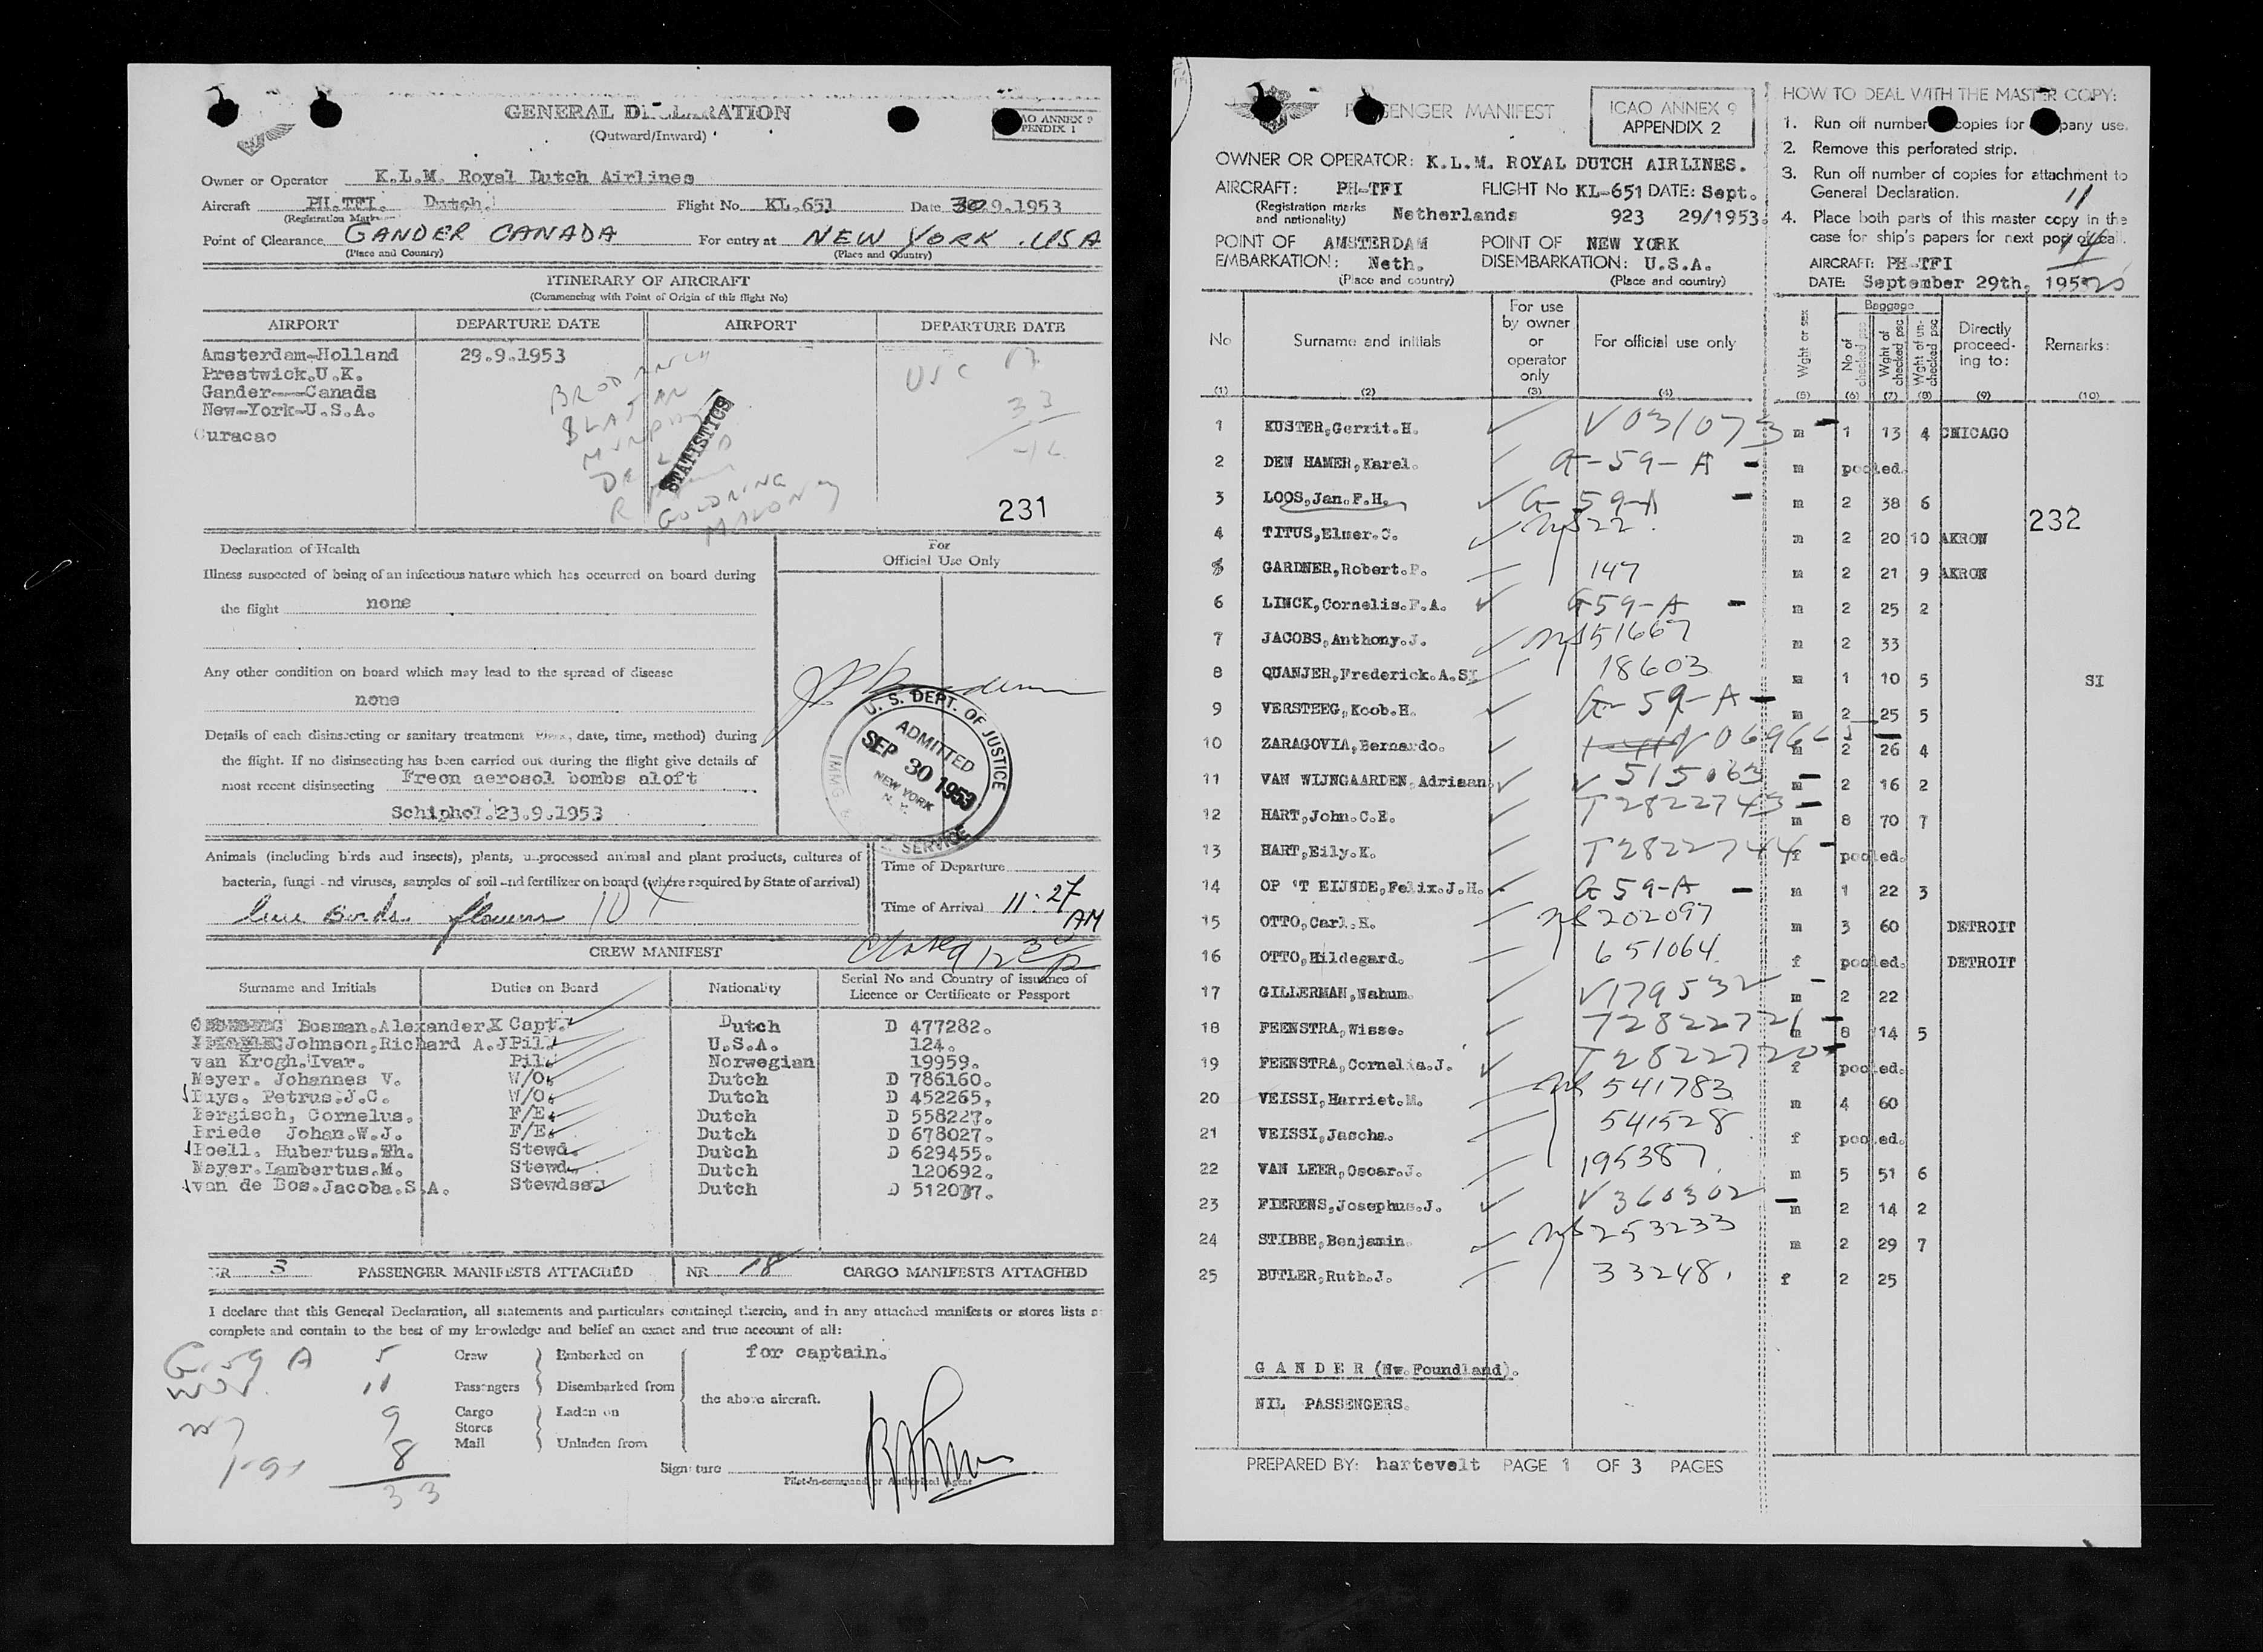 GENERAL DECLARATION
(Outward/Inward)
AO ANNEX 9
PENDIX 1
Owner or Operator K.L.M. Royal Dutch Airlines
Aircraft PH.TFI. Dutch. Flight No. KL.651 Date 30.9.1953
(Registration Marks
Point of Clearance GANDER CANADA For entry at NEW YORK . USA
(Place and Country) (Place and Country)
ITINERARY OF AIRCRAFT
(Commencing with Point of Origin of this flight No)
AIRPORT DEPARTURE DATE AIRPORT DEPARTURE DATE
Amsterdam-Holland 29.9.1953
Prestwick.U.K.
Gander---Canada
New-York-U.S.A.
Curacao
USC 17
33
STATISTICS
GOLDRING
MALONEY
231
Declaration of Health
For
Official Use Only
Illness suspected of being of an infectious nature which has occurred on board during
the flight none
Any other condition on board which may lead to the spread of disease
none
Details of each disinsecting or sanitary treatment , date, time, method) during
the flight. If no disinsecting has been carried out during the flight give details of
most recent disinsecting Freon aerosol bombs aloft
Schiphol.23.9.1953
U. S. DEPT. OF JUSTICE
ADMITTED
SEP 30 1953
NEW YORK
N. Y.
IMMG & SERVICE
Animals (including birds and insects), plants, unprocessed animal and plant products, cultures of
bacteria, fungi and viruses, samples of soil and fertilizer on board (where required by State of arrival)
live Birds. flowers
Time of Departure
Time of Arrival 11:27 AM
Closed 12 30 p
CREW MANIFEST
Surname and Initials Duties on Board Nationality Serial No and Country of issuance of Licence or Certificate or Passport
Bosman.Alexander.K Capt. Dutch D 477282.
Johnson,Richard A.J Pil. U.S.A. 124.
van Krogh.Ivar. Pil. Norwegian 19959.
Meyer. Johannes V. W/O. Dutch D 786160.
Buys. Petrus.J.C. W/O. Dutch D 452265.
Bergisch, Cornelus. F/E. Dutch D 558227.
Briede Johan.W.J. F/E. Dutch D 678027.
Hoell. Hubertus.Th. Stewd. Dutch D 629455.
Mayer.Lambertus.M. Stewd. Dutch 120692.
van de Bos.Jacoba.S.A. Stewdss. Dutch D 512037.
NR 3 PASSENGER MANIFESTS ATTACHED NR 18 CARGO MANIFESTS ATTACHED
I declare that this General Declaration, all statements and particulars contained therein, and in any attached manifests or stores lists a
complete and contain to the best of my knowledge and belief an exact and true account of all:
G-59 A 5
11
9
8
33
Crew Embarked on for captain.
Passengers Disembarked from the above aircraft.
Cargo Laden on
Stores
Mail Unladen from
Signature
Pilot-in-command or Authorized Agent
PASSENGER MANIFEST
ICAO ANNEX 9
APPENDIX 2
OWNER OR OPERATOR: K.L.M. ROYAL DUTCH AIRLINES.
AIRCRAFT: PH-TFI FLIGHT No KL-651 DATE: Sept.
(Registration marks and nationality) Netherlands 923 29/1953.
POINT OF EMBARKATION: AMSTERDAM Neth. POINT OF DISEMBARKATION: NEW YORK U.S.A.
(Place and country) (Place and country)
HOW TO DEAL WITH THE MASTER COPY:
1. Run off number copies for pany use.
2. Remove this perforated strip.
3. Run off number of copies for attachment to General Declaration.
4. Place both parts of this master copy in the case for ship's papers for next port of call.
11
14
AIRCRAFT: PH-TFI
DATE: September 29th, 195
No Surname and initials For use by owner or operator only For official use only Wght or sex Baggage No of checked psc Wght of checked psc Wght of un-checked psc Directly proceed-ing to: Remarks:
(1) (2) (3) (4) (5) (6) (7) (8) (9) (10)
1 KUSTER,Gerrit.H. V031073 m 1 13 4 CHICAGO
2 DEN HAMER,Karel. G-59-A m pooled.
3 LOOS,Jan.F.H. G-59-A m 2 38 6
232
4 TITUS,Elmer.C. 522. m 2 20 10 AKRON
5 GARDNER,Robert.P. 147 m 2 21 9 AKRON
6 LINCK,Cornelis.F.A. G59-A m 2 25 2
7 JACOBS,Anthony.J. 51667 m 2 33
8 QUANJER,Frederick.A.SI 18603 m 1 10 5 SI
9 VERSTEEG,Koob.H. G-59-A m 2 25 5
10 ZARAGOVIA,Bernardo. m 2 26 4
11 VAN WIJNGAARDEN,Adriaan. V 515063 m 2 16 2
12 HART,John.C.E. T2822743 m 8 70 7
13 HART,Eily.K. T2822744 f pooled.
14 OP 'T EIJNDE,Felix.J.H. G59-A m 1 22 3
15 OTTO,Carl.H. 202097 m 3 60 DETROIT
16 OTTO,Hildegard. 651064. f pooled. DETROIT
17 GILLERMAN,Nahum. V179532 m 2 22
18 FEENSTRA,Wisse. T2822721 m 8 14 5
19 FEENSTRA,Cornelia.J. T2822720 f pooled.
20 VEISSI,Harriet.M. 541783 m 4 60
21 VEISSI,Jascha. 541528 f pooled.
22 VAN LEER,Oscar.J. 195387. m 5 51 6
23 FIERENS,Josephus.J. V 360302 m 2 14 2
24 STIBBE,Benjamin. 253233 m 2 29 7
25 BUTLER,Ruth.J. 33248. f 2 25
G A N D E R (Nw.Foundland).
NIL PASSENGERS.
PREPARED BY: hartevelt PAGE 1 OF 3 PAGES